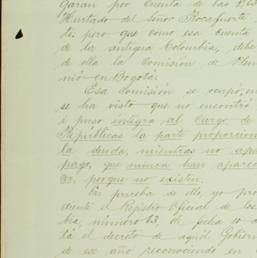 garan por cuenta de las Re
Hurtado del señor Rocafuerte
to; pero que como esa cuenta
de la antigua Colombia, debe
de ella la Comision de Plen
nió en Bogotá.
Esa Comisión se ocupó, en
se ha visto que no encontró
i puso integra al Cargo de
Repúblicas la parte proporcion
la deuda, mientras no apa
pago, que nunca han apare
porque no existen.
En prueba de ello, yo pre
el Registro Oficial de los
bia, número 63, de fecha 10
tá el decreto de aquél Gobier
de ese año reconociendo en